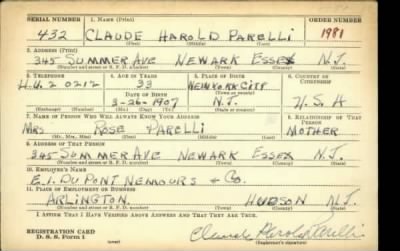 SERIAL NUMBER 1. NAME (Print) ORDER NUMBER
432 CLAUDE HAROLD PARELLI 1981
(First) (Middle) (Last)
2. ADDRESS (Print)
345 SUMMER AVE NEWARK ESSEX N.J.
(Number and street or R. F. D. number) (Town) (County) (State)
3. TELEPHONE 4. AGE IN YEARS 5. PLACE OF BIRTH 6. COUNTRY OF CITIZENSHIP
H.U. 2 0212 33 NEW YORK CITY
DATE OF BIRTH (Town or county)
3-26-1907 N.J. U.S.A
(Exchange) (Number) (Mo.) (Day) (Yr.) (State or country)
7. NAME OF PERSON WHO WILL ALWAYS KNOW YOUR ADDRESS 8. RELATIONSHIP OF THAT PERSON
MRS ROSE PARELLI MOTHER
(Mr., Mrs., Miss) (First) (Middle) (Last)
9. ADDRESS OF THAT PERSON
345 SUMMER AVE NEWARK ESSEX N.J.
(Number and street or R. F. D. number) (Town) (County) (State)
10. EMPLOYER'S NAME
E.I. DU PONT NEMOURS & CO.
11. PLACE OF EMPLOYMENT OR BUSINESS
ARLINGTON HUDSON N.J.
(Number and street or R. F. D. number) (Town) (County) (State)
I AFFIRM THAT I HAVE VERIFIED ABOVE ANSWERS AND THAT THEY ARE TRUE.
REGISTRATION CARD
D. S. S. Form 1 (over) Claude Harold Parelli
(Registrant's signature)